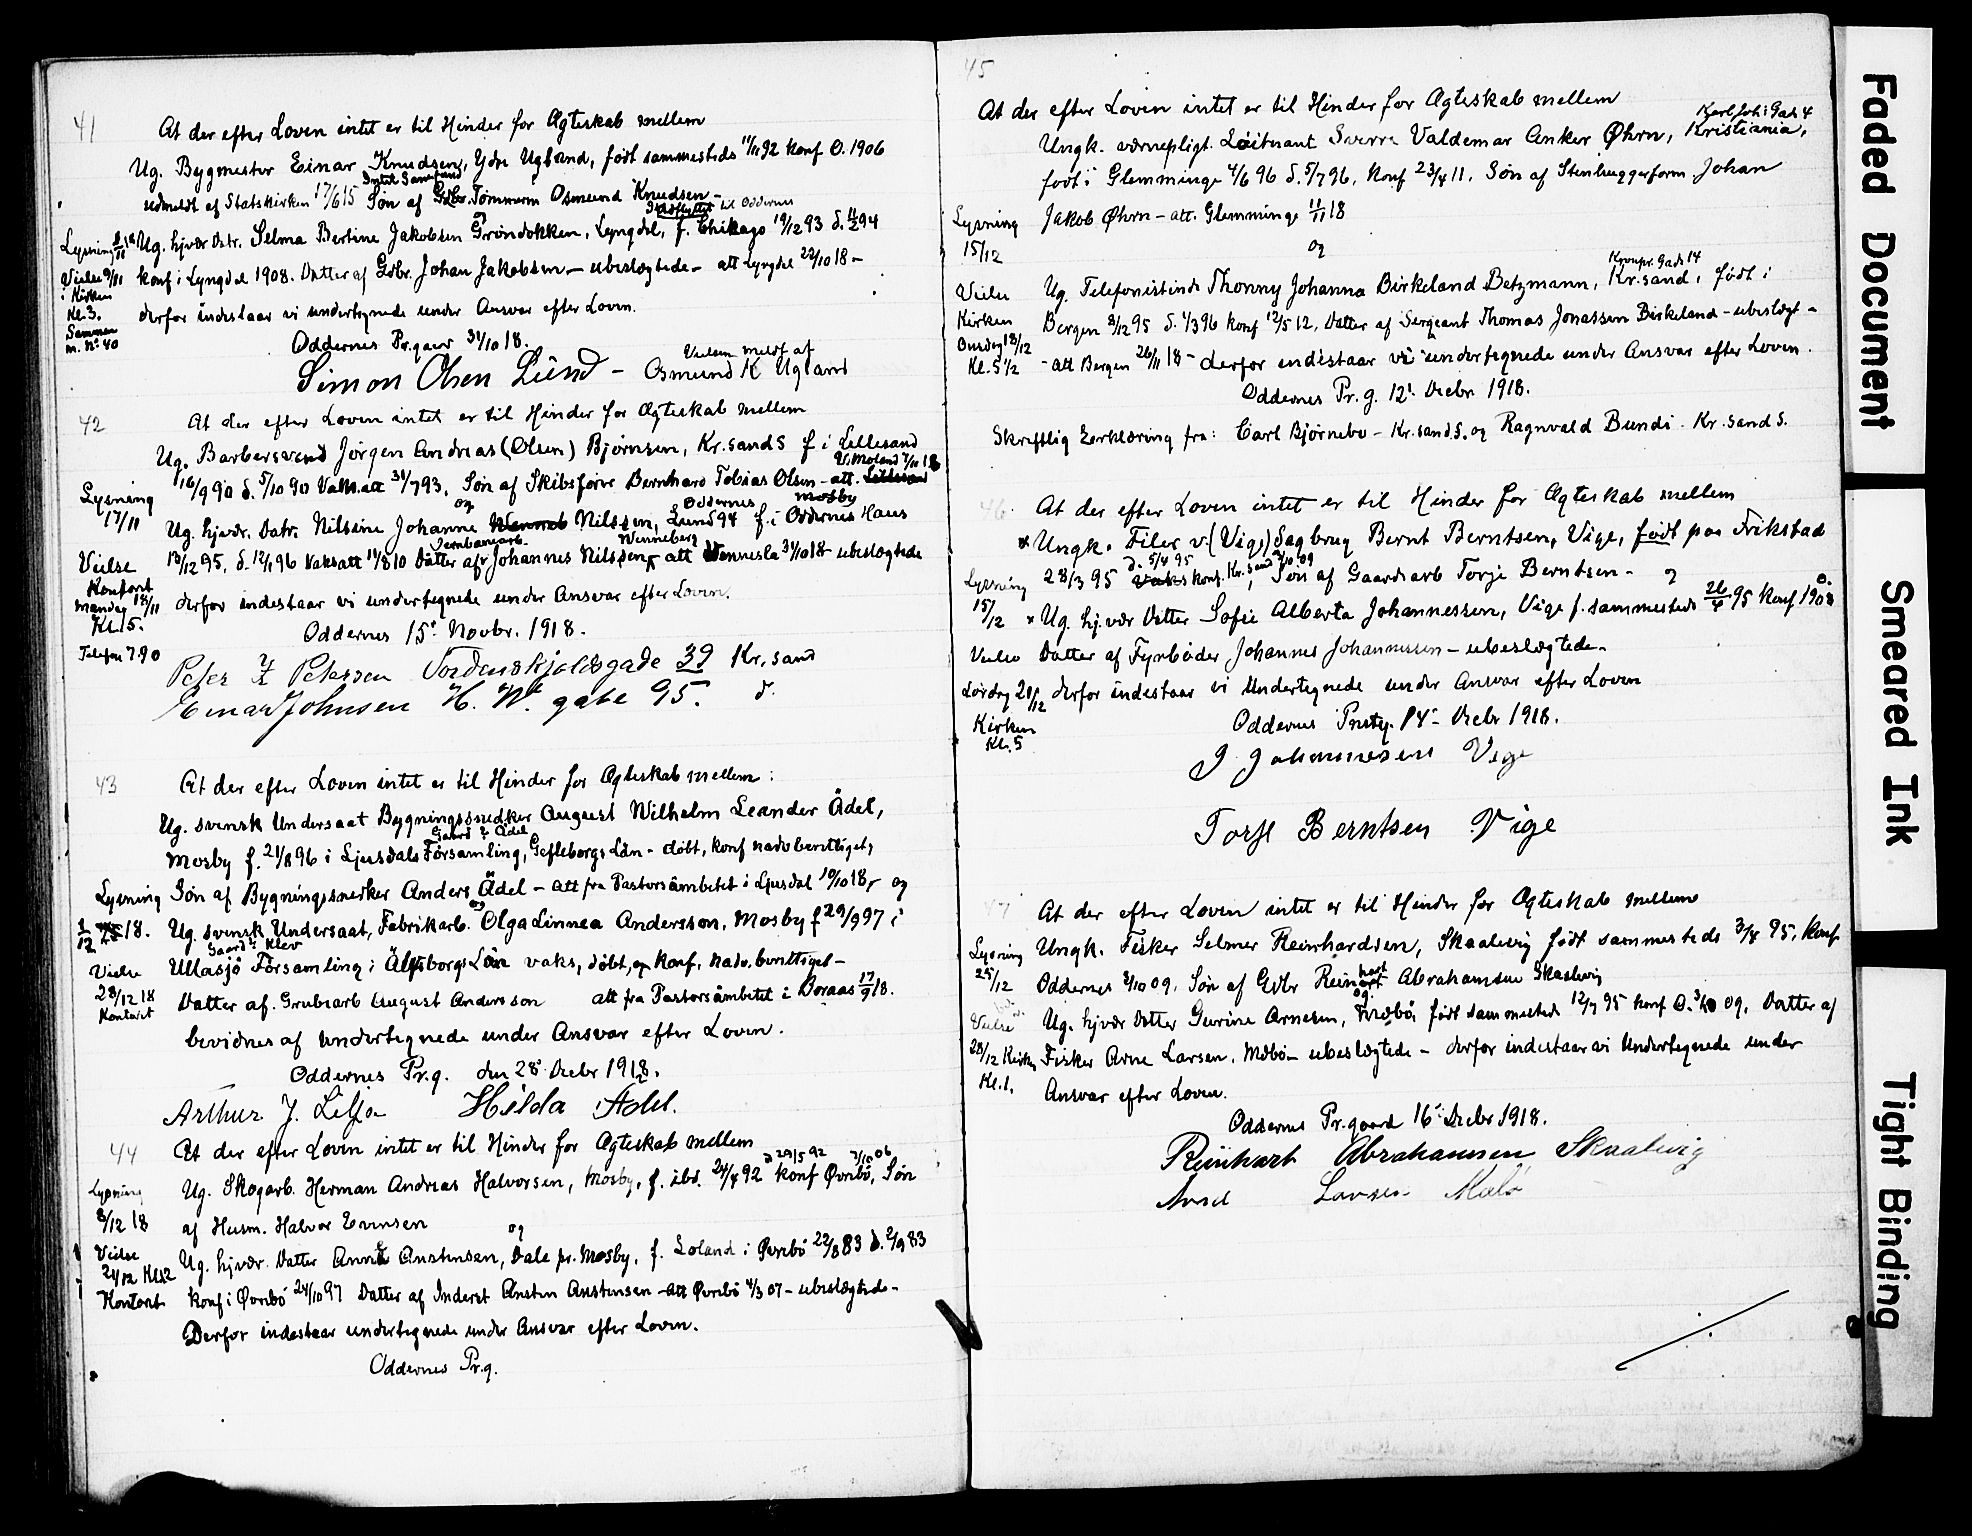 41
At der efter Loven intet er til Hinder for Ægteskab mellem
Ug. Bygmester Einar Knudsen, Ydre Ugland, født sammesteds 11/11 92 konf O. 1906
udmeldt af Statskirken 17/6 15 Søn af Gdbr. Tømmerm Osmund Knudsen -
og
Indflyttet til Oddernes
Lysning
Ug. hjvær Datr. Selma Bertine Jakobsen Grøndokken, Lyngdal, f. Chikago 19/12 93 d. 11/2 94
Vielse 9/11
i Kirken
Kl. 3.
Sammen
m. No 40
konf i Lyngdal 1908. Datter af Gdbr. Johan Jakobsen - ubeslægtede - att Lyngdal 22/10 18 -
derfor indestaar vi undertegnede under Ansvar efter Loven.
Oddernes Pr.gaard 31/10 18.
Simon Olsen Lund - Osmund K Ugland
42
At der efter Loven intet er til Hinder for Ægteskab mellem
Ug. Barbersvend Jørgen Andreas (Olsen) Bjørnsen, Kr.sand S f i Lillesand
V. Moland 7/11 18
16/9 90 d. 5/10 90 Vak.att 31/7 93. Søn af Skibsfører Bernhard Tobias Olsen - att. Lillesand
og
Oddernes
Mosby
Lysning
17/11
Ug. hjvær. Datr. Nilsine Johanne Nilssen, Lund 94 f. i Oddernes Haus
Jernbanearb.
Wenneberg
Vielse
Kontoret
Mandag 18/11
Kl. 5.
Telefon 790
13/12 95, d. 12/1 96 Vaksatt 11/8 10 Datter af Johannes Nilssen, att Vennesla 31/10 18 - ubeslægtede
derfor indestaar vi undertegnede under Ansvar efter Loven.
Oddernes 15. Novbr. 1918.
Peter Petersen Tordenskjoldsgade 39 Kr. sand
Einar Johnsen H. W. gate 95. d.
43
At der efter Loven intet er til Hinder for Ægteskab mellem:
Ug. svensk Undersaat Bygningssnedker August Wilhelm Leander Ådel,
Mosby f. 21/8 96 i Ljusdals Församling, Gefleborgs Län - døbt, konf nadvberettiget,
Lysning
Søn af Bygningssnedker Anders Ådel - att fra Pastorsämbetet i Ljusdal 19/10 18, og
1/12 18.
Ug. svensk Undersaat, Fabrikarb. Olga Linnea Andersson, Mosby f 29/9 97 i
Gaard: Klev
Vielse
28/12 18
Kontoret
Ullasjö Församling i Älfsborgs Län vaks, døbt, og konf. nadv.berettiget -
Datter af. Grubearb August Andersson att fra Pastorsämbetet i Boraas 17/9 18.
bevidnes af undertegnede under Ansvar efter Loven.
Oddernes Pr.g. den 28. Decbr 1918.
Arthur J. Lilja Hilda Adel.
44
At der efter Loven intet er til Hinder for Ægteskab mellem
d 29/5 92
Lysning
8/12 18
Ug. Skogarb. Herman Andreas Halvorsen, Mosby, f. ibd. 24/4 92 konf Øvrebø, Søn
af Husm. Halvor Evensen
og
Vielse
24/12 Kl 12
Kontoret
Ug. hjvær. Datter Anne Austensen, Dale pr. Mosby, f. Loland i Øvrebø 22/8 83 d. 2/9 83
konf i Øvrebø 24/10 97 Datter af Inderst Austen Austensen - att Øvrebø 4/3 07 - ubeslægtede -
Derfor indestaar undertegnede under Ansvar efter Loven.
Oddernes Pr.g.
45
At der efter Loven intet er til Hinder for Ægteskab mellem
Karl Joh: Gade 4
Ungk. værnepligt. Løitnant Sverre Valdemar Anker Øhrn, Kristiania,
født i Glemminge 4/6 96 d. 5/7 96. konf 23/4 11. Søn af Stenhuggerform. Johan
Lysning
15/12
Jakob Øhrn - att. Glemminge 11/11 18
og
Kronpr. Gade 14
Vielse
Kirken
Onsdag 18/12
Kl. 5 1/2
Ug. Telefonistinde Thonny Johanna Birkeland Betzmann, Kr.sand, født i
Bergen 8/12 95 d. 1/3 96 konf 12/5 12, Datter af Sergeant Thomas Jonassen Birkeland - ubeslægt -
- att Bergen 26/11 18 - derfor indestaar vi undertegnede under Ansvar efter Loven.
Oddernes Pr. g. 12. Decbr 1918.
Skriftlig Erklæring fra: Carl Bjørnebo - Kr.sand.S. og Ragnvald Bundi. Kr. sand S.
46.
At der efter Loven intet er til Hinder for Ægteskab mellem
× Ungk. Filer v: (Vige) Sagbrug Bernt Berntsen, Vige, født paa Frikstad
d. 5/4 95
Lysning
15/12
28/3 95 Vaks konf. Kr. sand, Søn af Gaardsarb Torje Berntsen - og
× Ug. hj.vær Datter Sofie Alberta Johannessen, Vige f. sammesteds 26/4 95 konf O. 1908
Vielse
Lørdag 21/12
Kirken
Kl. 5
Datter af Fyrbøder Johannes Johannessen - ubeslægtede -
derfor indestaar vi Undertegnede under Ansvar efter Loven
Oddernes Prstg. 14. Decbr 1918.
J Johannesen Vige
Torje Berntsen Vige
47
At der efter Loven intet er til Hinder for Ægteskab mellem
Lysning
Ungk. Fisker Selmer Reinhardsen, Skaalevig født sammesteds 3/4 95, konf
Oddernes 3/10 09, Søn af Gdbr Reinhart Abrahamsen Skaalevig
og
Vielse
28/12 Kirken
Kl. 1.
Ug. hjvær Datter Gurine Arnesen, født sammesteds 12/7 95 konf O. 3/10 09, Datter af
Fisker Arne Larsen, Mebø - ubeslægtede - derfor indestaar vi Undertegnede under
Ansvar efter Loven.
Oddernes Pr.gaard 16. Decbr 1918.
Reinhart Abrahamsen Skaalevig
Larsen
Faded Document
Smeared Ink
Tight Binding